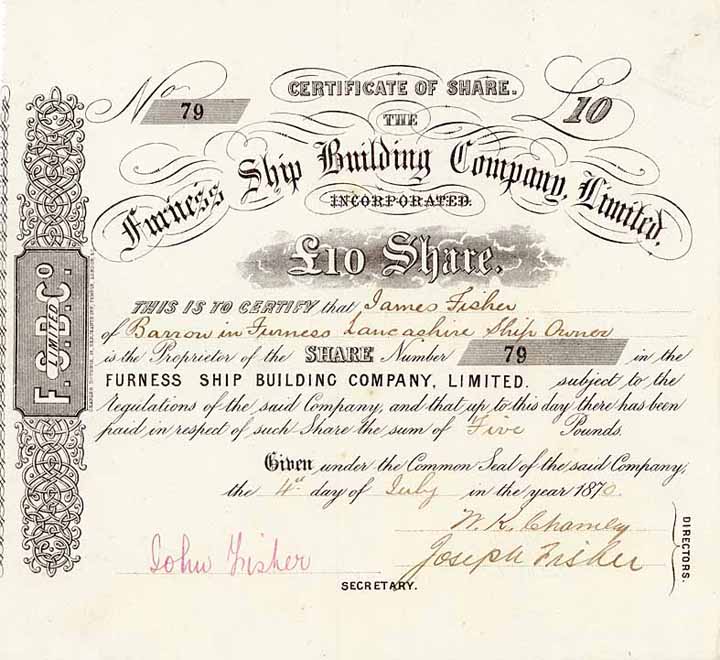 CERTIFICATE OF SHARE.
No. 79
£10
THE
Furness Ship Building Company, Limited.
INCORPORATED.
£10 Share.
THIS IS TO CERTIFY that James Fisher
of Barrow in Furness Lancashire Ship Owner
is the Proprietor of the SHARE Number 79 in the
FURNESS SHIP BUILDING COMPANY, LIMITED. subject to the
regulations of the said Company, and that up to this day there has been
paid in respect of such Share the sum of Five Pounds.
Given under the Common Seal of the said Company,
the 4st day of July in the year 1870.
W. K. Chamley
Joseph Fisher
DIRECTORS.
John Fisher
SECRETARY.
F. S. B. Co.
LIMITED